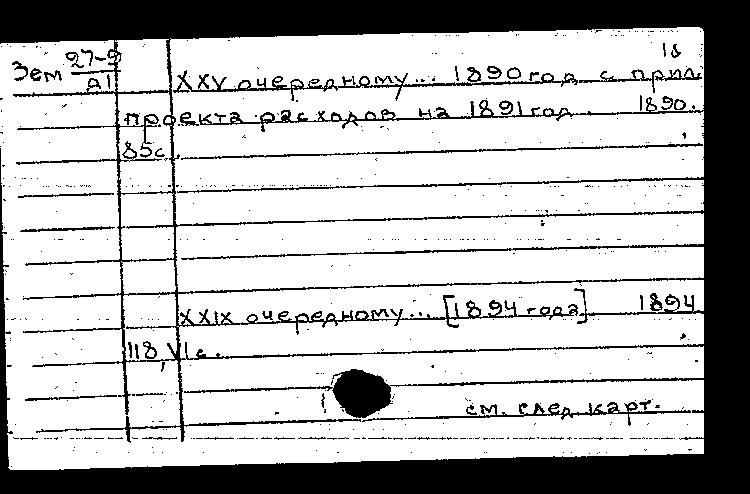 18
Зем 27-9/А1 XXV очередному... 1890 год с прил.
проекта расходов на 1891 год. 1890.
85с.
XXIX очередному... [1894 года]. 1894
118, VI с.
см. след. карт.